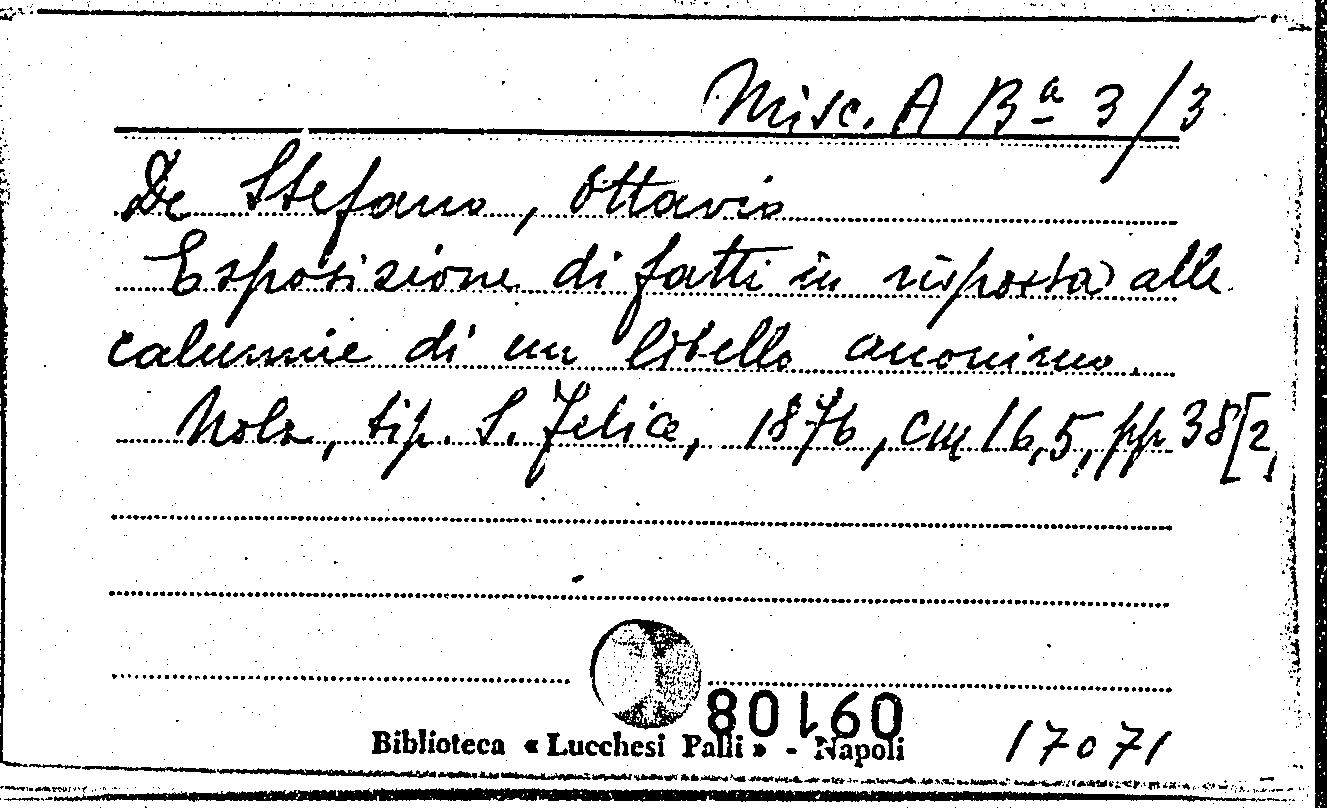 Misc. A Bª 3/3
De Stefano, Ottavio
Esposizione di fatti in risposta alle
calunnie di un libello anonimo.
Nola, tip. S. Felice, 1876, cm 16,5, pp. 38[2,
09108
Biblioteca « Lucchesi Palli » - Napoli 17071